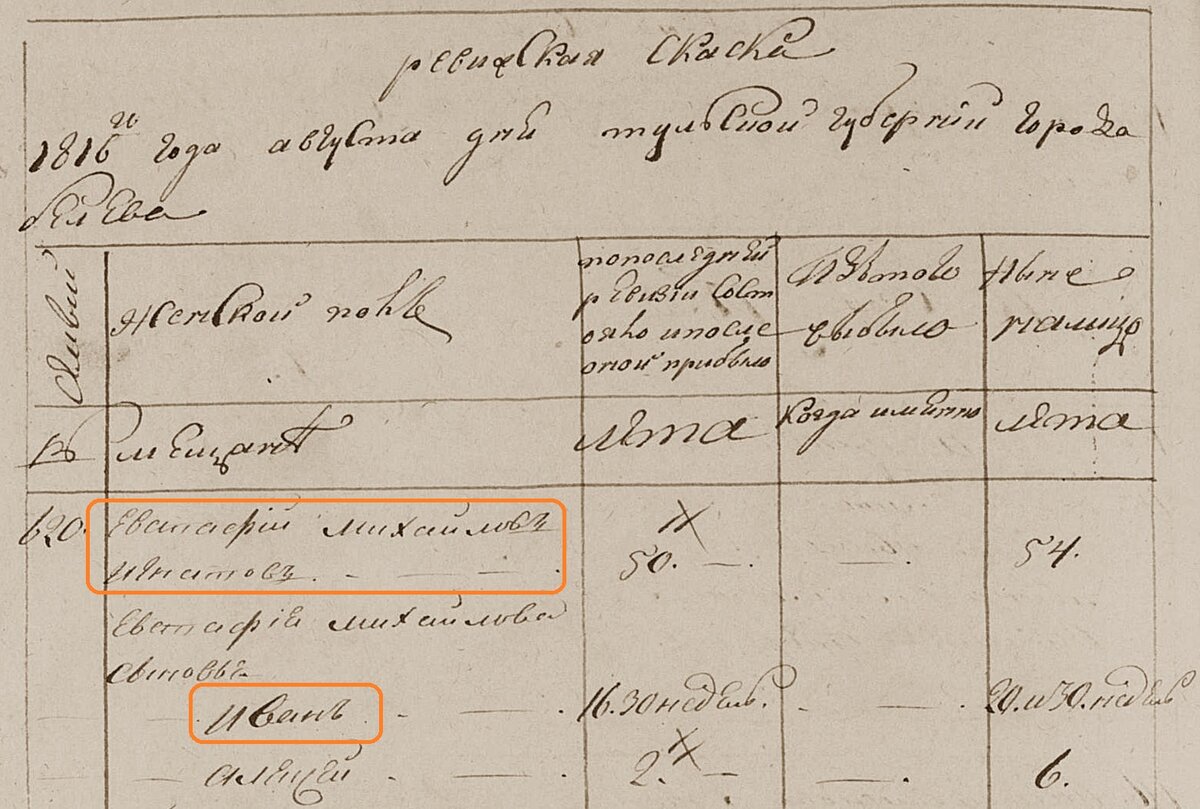 ревижская скаска
1816 го года августа дня тульской губернии города
белева
Женской полъ
попоследней
ревизии сост
ояло ипосле
оной прибыло
Изътого
выбыло
Ныне
налицо
мещанѣ
лѣта
Когда имянно
лѣта
620.
Евстафiй михайловъ
игнатовъ. - — — .
50. —.
—.
54.
Евстафiя михайлова
сыновья
иванъ - — .
16.30недель.
- —.
20.и30.недель
алексей - — .
2. —
—.
6.